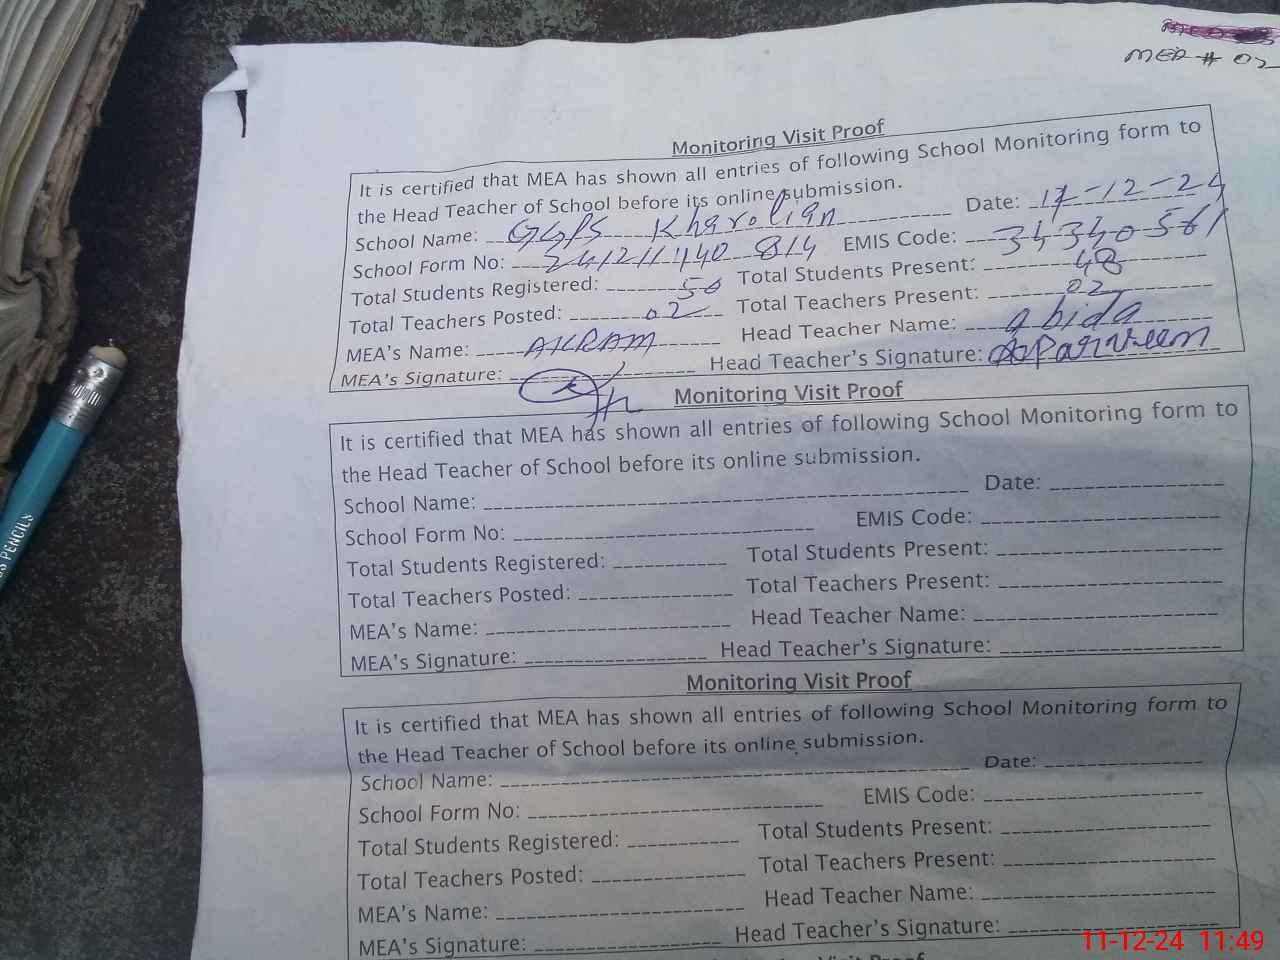 MEA # 02
Monitoring Visit Proof
It is certified that MEA has shown all entries of following School Monitoring form to
the Head Teacher of School before its online submission.
School Name: GGPS Kharolian Date: 17-12-24
School Form No: 241211140814 EMIS Code: 34340561
Total Students Registered: 50 Total Students Present: 48
Total Teachers Posted: 02 Total Teachers Present: 02
MEA's Name: AKRAM Head Teacher Name: abida
MEA's Signature: Head Teacher's Signature: Parveen
Monitoring Visit Proof
It is certified that MEA has shown all entries of following School Monitoring form to
the Head Teacher of School before its online submission.
School Name: Date:
School Form No: EMIS Code:
Total Students Registered: Total Students Present:
Total Teachers Posted: Total Teachers Present:
MEA's Name: Head Teacher Name:
MEA's Signature: Head Teacher's Signature:
Monitoring Visit Proof
It is certified that MEA has shown all entries of following School Monitoring form to
the Head Teacher of School before its online submission.
School Name: Date:
School Form No: EMIS Code:
Total Students Registered: Total Students Present:
Total Teachers Posted: Total Teachers Present:
MEA's Name: Head Teacher Name:
MEA's Signature: Head Teacher's Signature:
Visit Proof
PENCILS
11-12-24 11:49